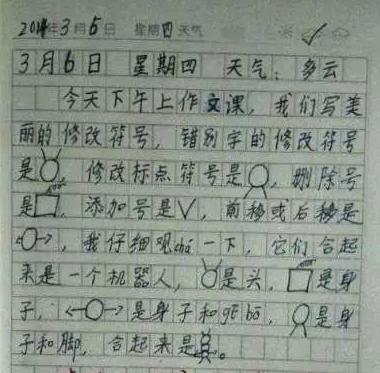 2014年3月6日 星期四 天气
3月6日 星期四 天气：多云
今天下午上作文课，我们写美
丽的修改符号，错别字的修改符号
是，修改标点符号是，删除号
是，添加号是∨，前移或后移是
，我仔细观chá一下，它们合起
来是一个机器人，是头，是身
子，是身子和gē bō，是身
子和脚，合起来是。